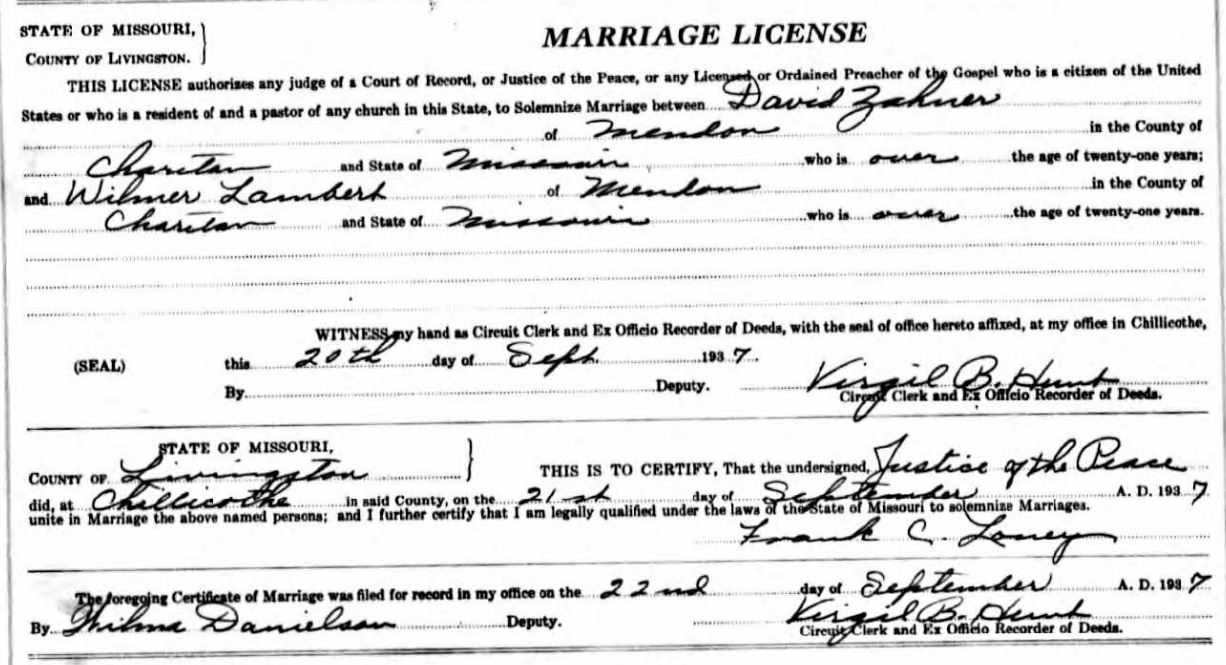 STATE OF MISSOURI,
COUNTY OF LIVINGSTON.
MARRIAGE LICENSE
THIS LICENSE authorizes any judge of a Court of Record, or Justice of the Peace, or any Licensed or Ordained Preacher of the Gospel who is a citizen of the United
States or who is a resident of and a pastor of any church in this State, to Solemnize Marriage between David Zahner
of Mendon in the County of
Chariton and State of Missouri who is over the age of twenty-one years;
and Wilmer Lambert of Mendon in the County of
Chariton and State of Missouri who is over the age of twenty-one years.
WITNESS my hand as Circuit Clerk and Ex Officio Recorder of Deeds, with the seal of office hereto affixed, at my office in Chillicothe,
(SEAL) this 20th day of Sept. 1937.
By Deputy. Virgil B. Hunt
Circuit Clerk and Ex Officio Recorder of Deeds.
STATE OF MISSOURI,
COUNTY OF Livingston THIS IS TO CERTIFY, That the undersigned, Justice of the Peace
did, at Chillicothe in said County, on the 21st day of September A. D. 1937
unite in Marriage the above named persons; and I further certify that I am legally qualified under the laws of the State of Missouri to solemnize Marriages.
Frank C. Loney
The foregoing Certificate of Marriage was filed for record in my office on the 22nd day of September A. D. 1937
By Wilma Danielson Deputy. Virgil B. Hunt
Circuit Clerk and Ex Officio Recorder of Deeds.